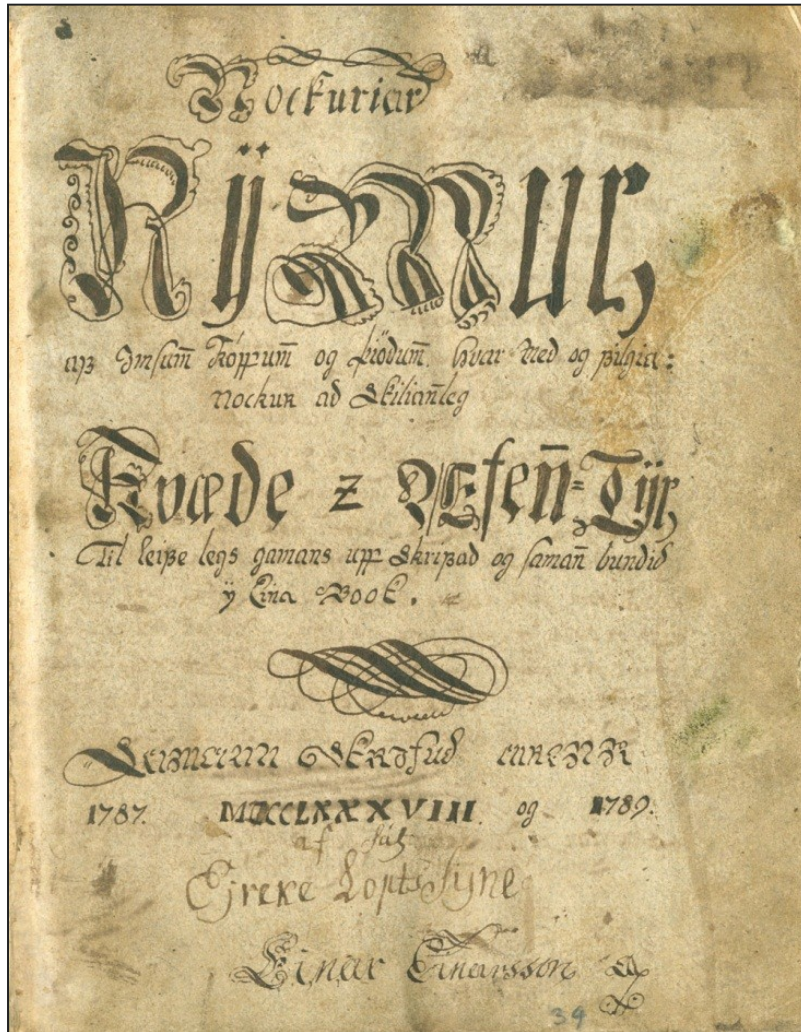 Nockuriar
Rÿmur
aß Ymsum̅ Köppum̅ og þiödum̅. hvar Med og þilgia:
Nockur ad Skilian̅leg
Kvæde z Æfen̅=Tÿr
Til leiße legs gamans upp Skrißad og saman̅ bundid
ÿ Eina Book.
1787. MDCCLXXXVIII. og 1789.
af
Ejreke Lopts Syne
Einar Einarsson
34